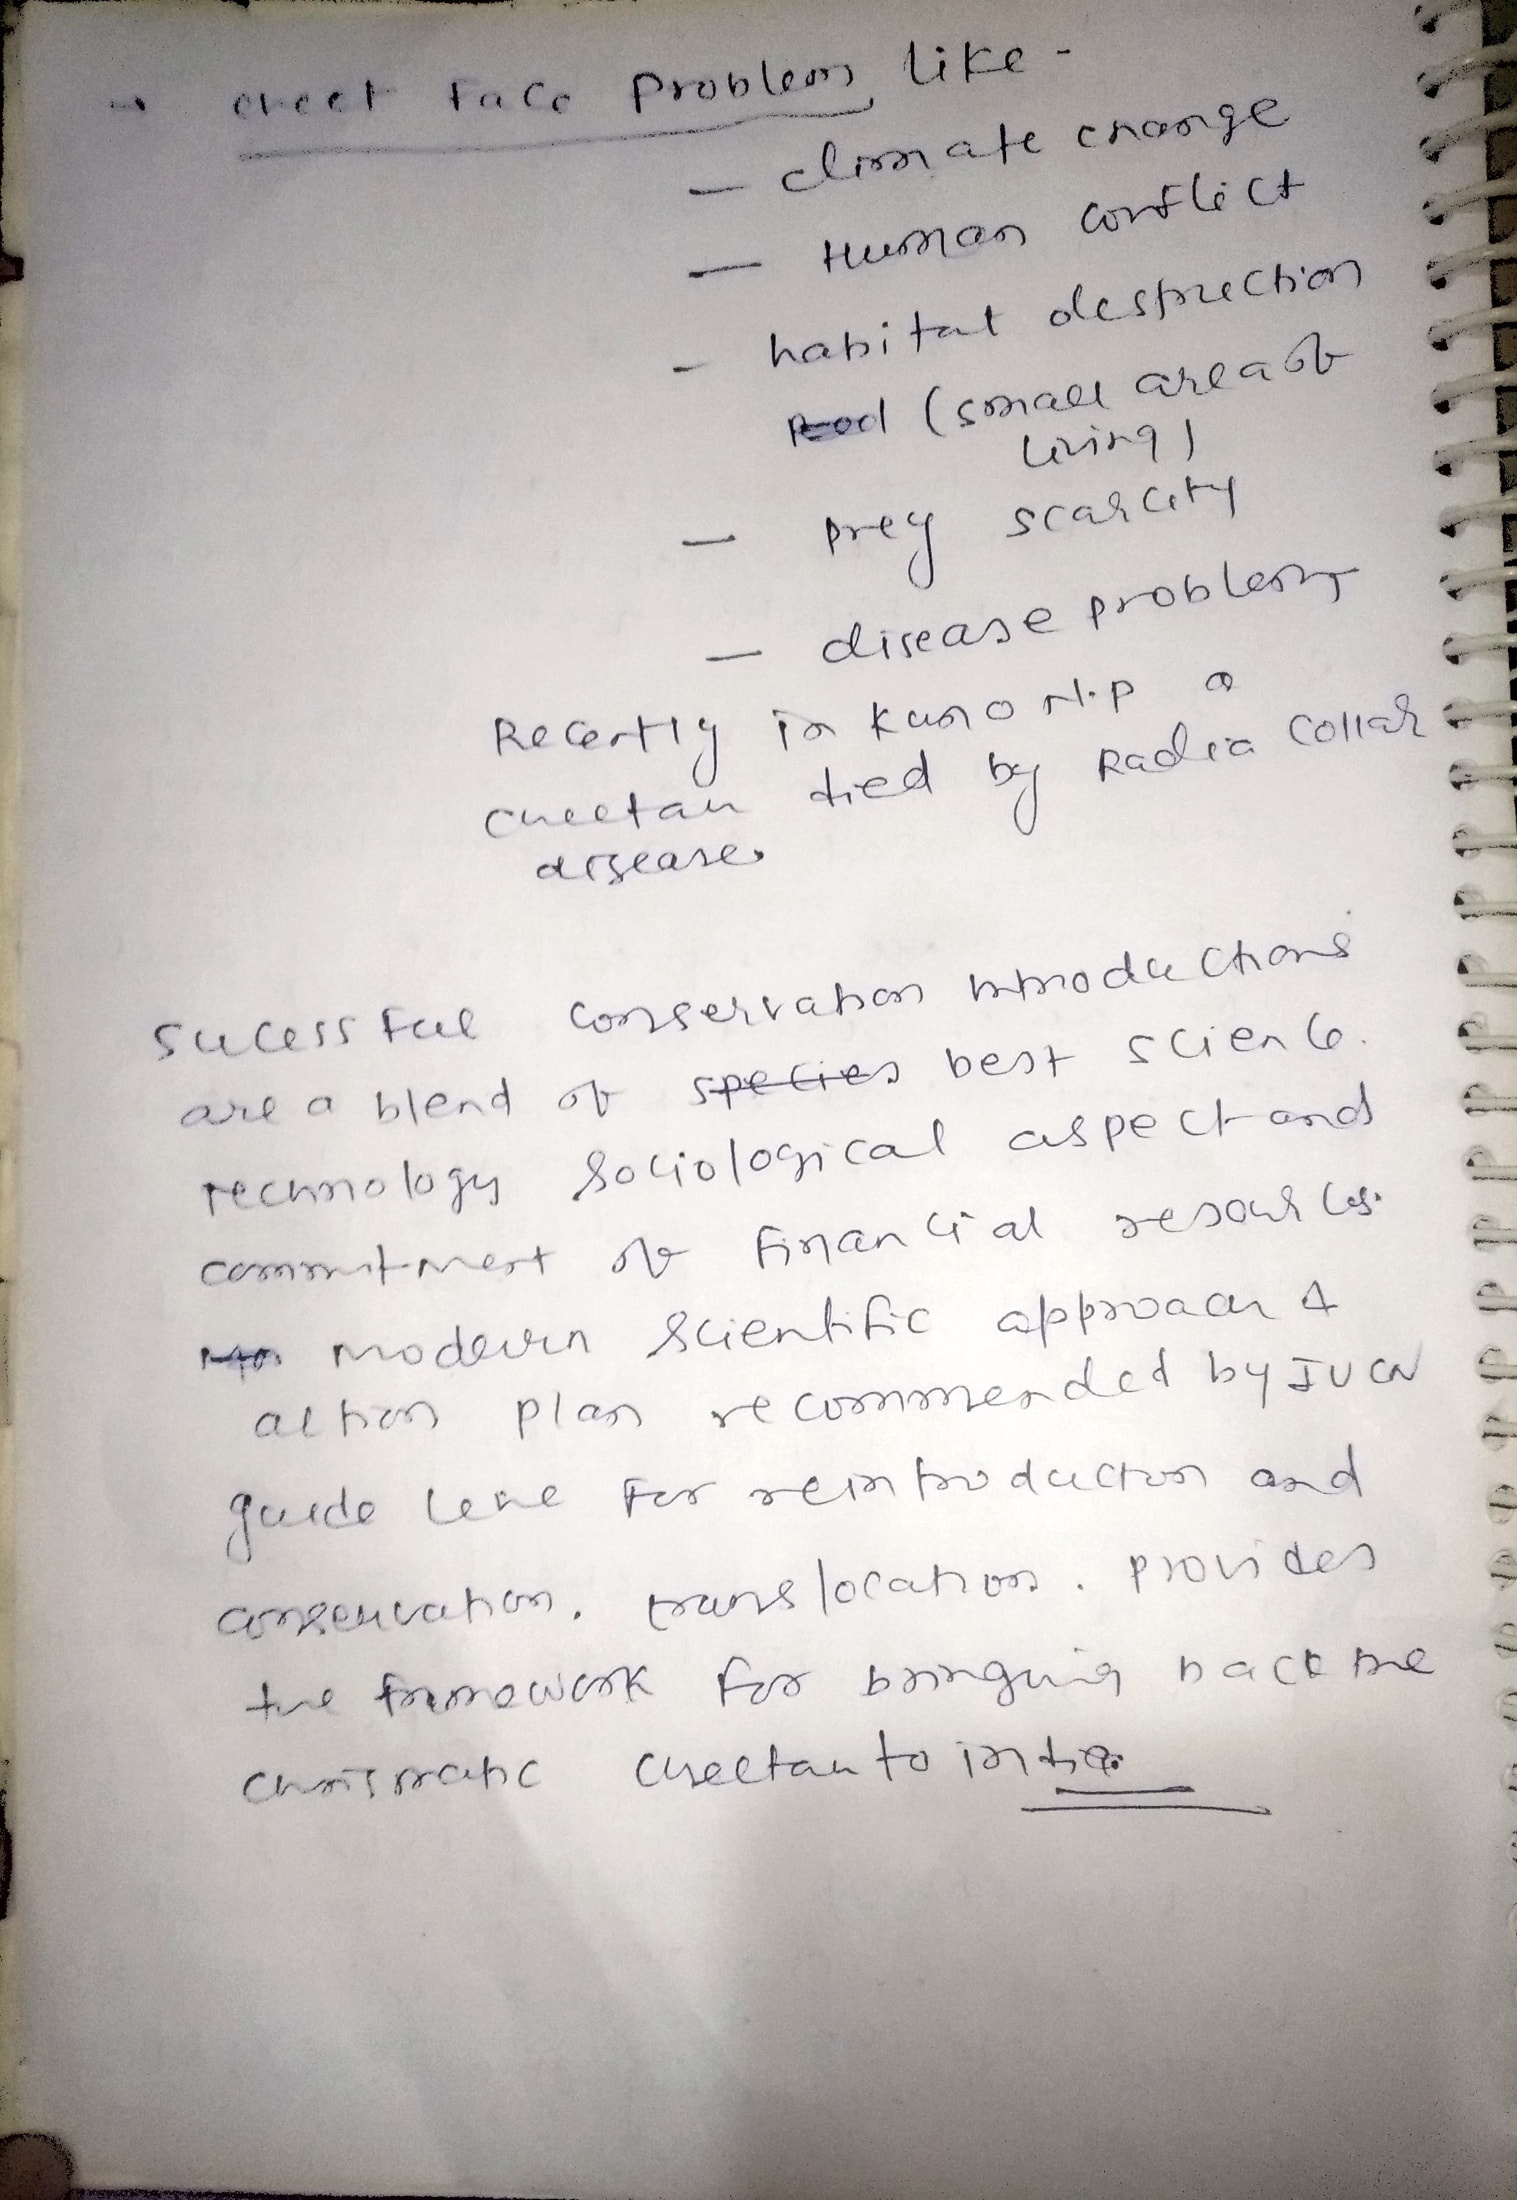 → cheet face problem like -
- climate change
- Human conflict
- habitat destruction
(small area of
living)
- prey scarcity
- disease problem
Recently in Kuno N.P a
cheetah died by Radia collar
disease.
Sucessful conservation introductions
are a blend of species best science.
technology sociological aspect and
commitment of financial resources.
modern scientific approach &
action plan recommended by IUCN
guide line for reintroduction and
conservation. translocation. provides
the framework for bringing back the
charismatic cheetah to india.